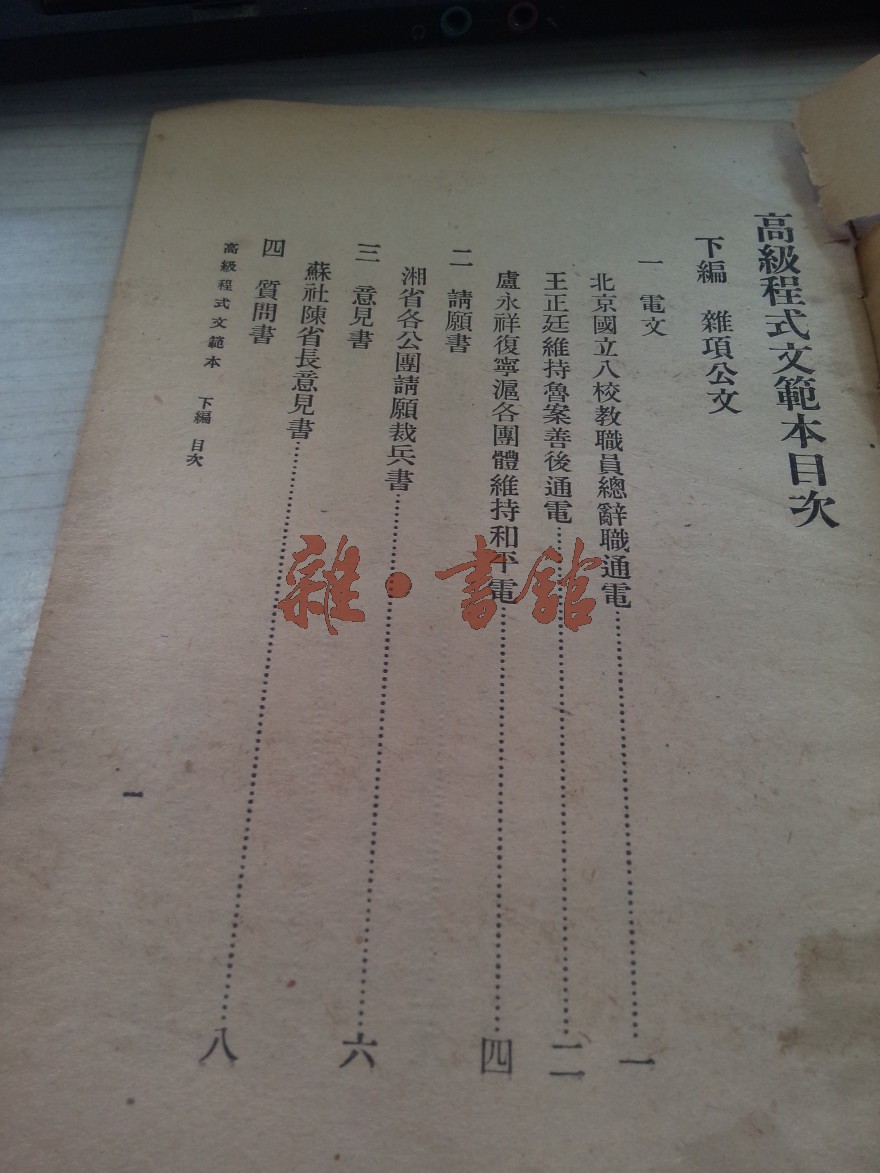 高級程式文範本目次
下編　雜項公文
一　電文
北京國立八校教職員總辭職通電……一
王正廷維持魯案善後通電……二
盧永祥復寧滬各團體維持和平電……四
二　請願書
湘省各公團請願裁兵書……六
三　意見書
蘇社陳省長意見書……八
四　質問書
高級程式文範本　下編　目次
一
雜·書館